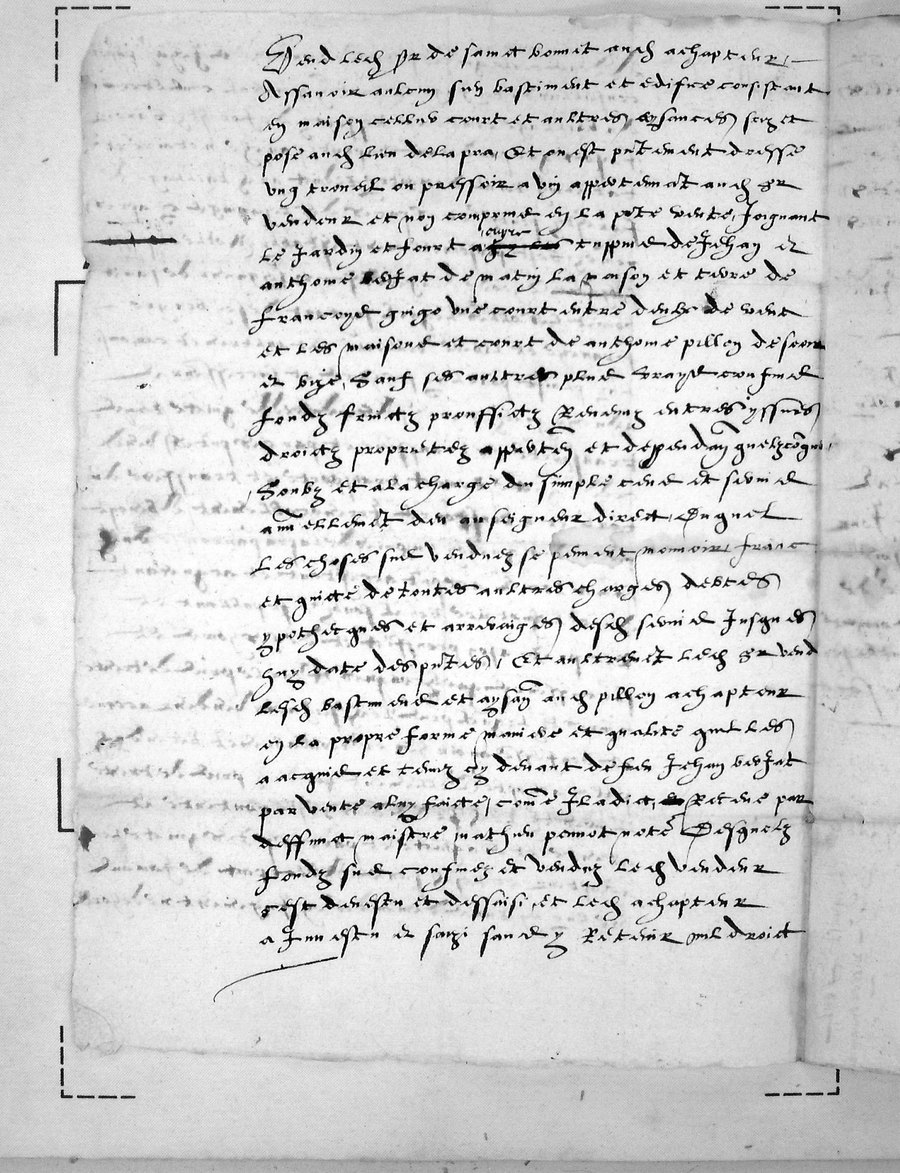 Vend led sr de sainct bonnet aud achapteur
Assavoir aulcun sien bastiment et edifice consistant
en maison cellier court et aultres aysances size et
pose aud lieu de la pra, Et ou est pntement dresse
ung treueil ou pressoir a vin appertenant aud sr
vendeur et non comprins en la pnte vente, Joignant
le Jardin et court de Jehan et
anthoine de matin la maison et terre de
francoys guigo une court entre deulx de vent
et les maisons et court de anthoine pillon de soir
et bize, Sauf ses aultres plus vrays confins
fondz fruictz prouffictz Revenuz entrees yssues
droictz proprietez apperten et dependan quelzconques
Soubz et a la charge du simple cens et servis
deu au seigneur direct, Duquel
les choses sus vendues se peuvent mouvoir, franc
et quicte de toutes aultres charges debtes
ypothecques et arreraiges desd servis Jusques
huy date des pntes, Et aultrement led sr vend
lesd bastimens et aysan aud pillon achapteur
en la propre forme maniere et qualite quil les
a acquis et tenuz cy devant de feu Jehan
par vente a luy faicte, comme Il a dict, Receue par
deffunct maistre mathieu note Desquelz
fondz sus confinez et venduz led vendeur
cest devestu et dessaisi et led achapteur
a Investu et saizi sans y Retenir nul droict